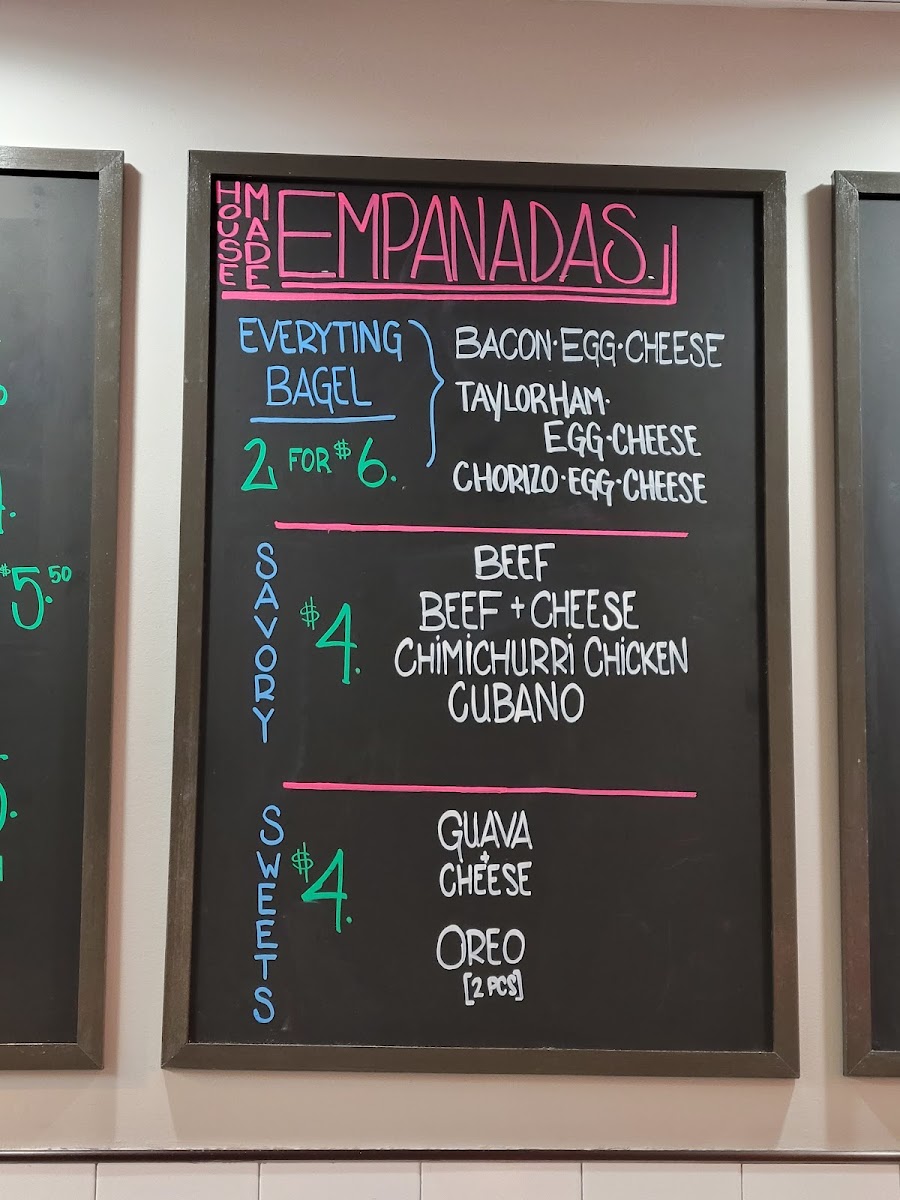 HOUSE MADE EMPANADAS.
EVERYTING
BAGEL
2 FOR $6.
BACON·EGG·CHEESE
TAYLORHAM·
EGG·CHEESE
CHORIZO·EGG·CHEESE
SAVORY
$4.
BEEF
BEEF + CHEESE
CHIMICHURRI CHICKEN
CUBANO
SWEETS
$4.
GUAVA
+
CHEESE
OREO
[2 PCS]
$5.50